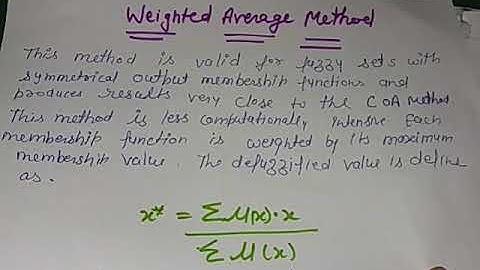 Weighted Average Method
This method is valid for fuzzy sets with
symmetrical output membership functions and
produces results very close to the COA Method.
This method is less computationally intensive Each
membership function is weighted by its maximum
membership value. The defuzzified value is define
as.
x* = ΣM(x)·x
ΣM(x)